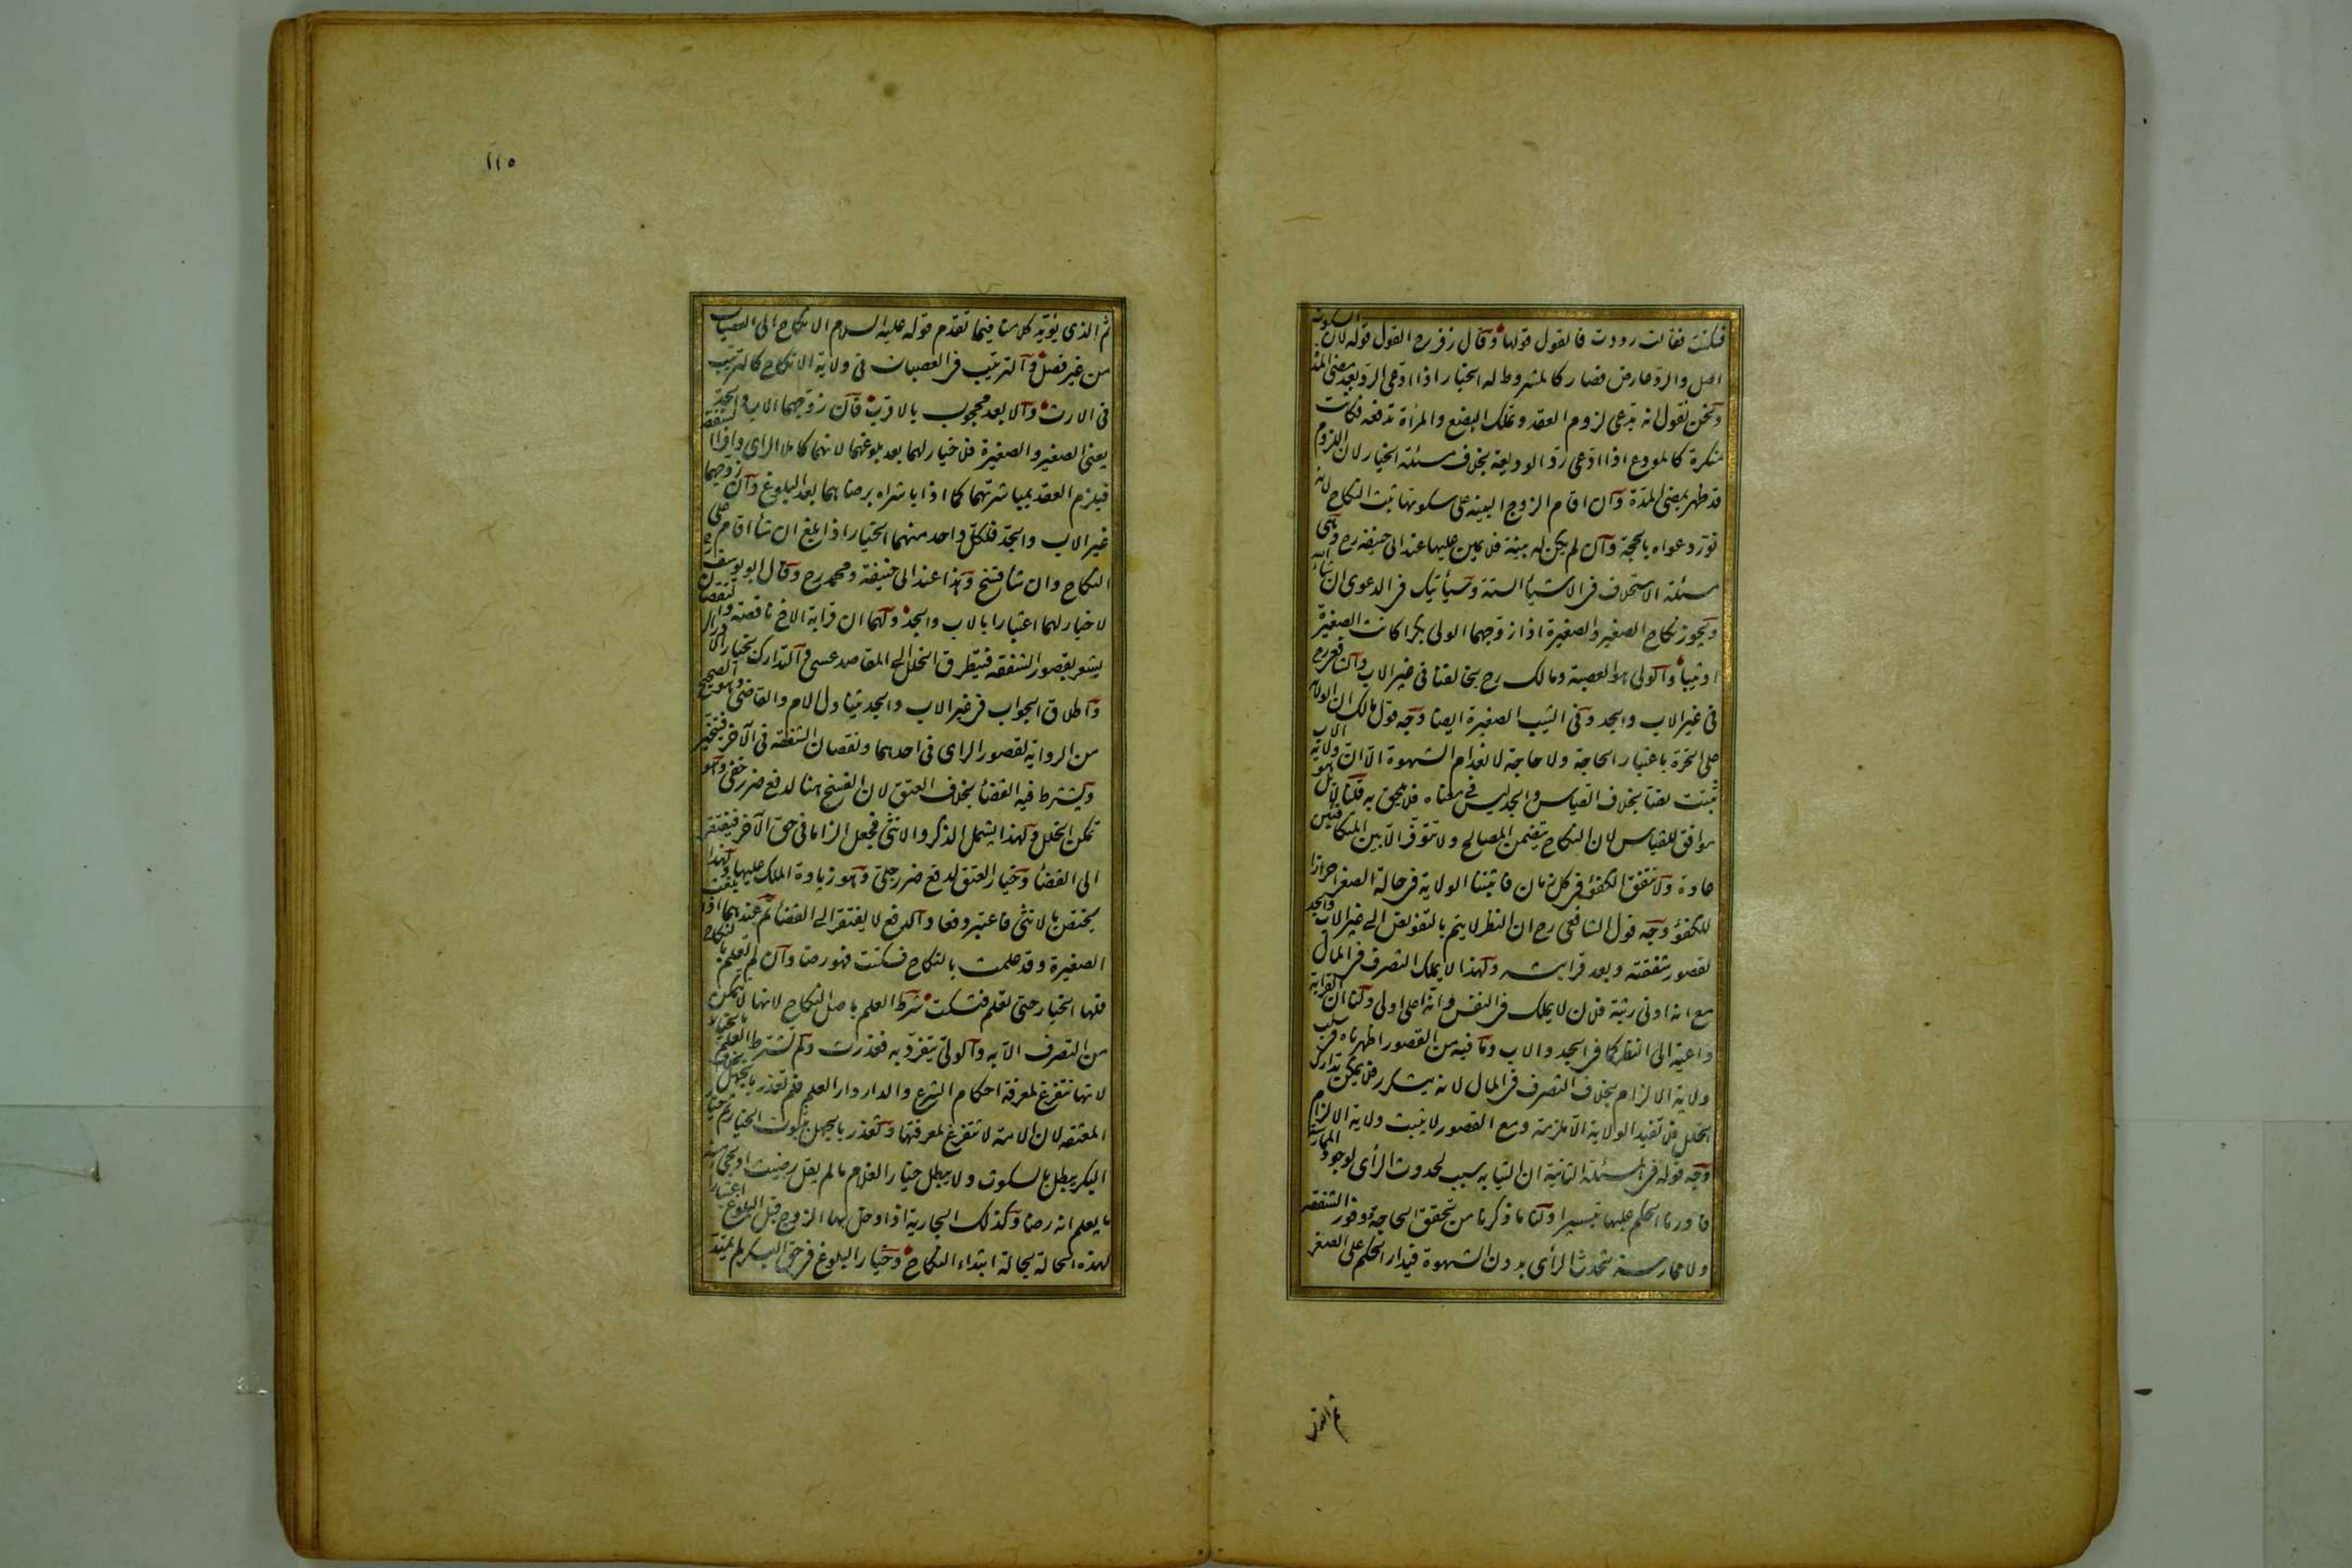 فسكتت فقالت رددت فالقول قولها وقال زفر رح القول قوله لان السكوت
اصل والرد عارض فصار كالمشروط له الخيار اذا ادعى الرد بعد مضى المدة
ونحن نقول انه يدعى لزوم العقد وتملك البضع والمرأة تدفعه فكانت
منكرة كالمودع اذا ادعى رد الوديعة بخلاف مسئلة الخيار لان اللزوم
قد ظهر بمضى المدة وان اقام الزوج البينة على سكوتها ثبت النكاح لانه
نور دعواه بالحجة وان لم يكن له بينة فلا يمين عليها عند ابى حنيفة رح وهى
مسئلة الاستحلاف فى الاشياء الستة وسيأتيك فى الدعوى ان شاء الله
ويجوز نكاح الصغير والصغيرة اذا زوجهما الولى بكرا كانت الصغيرة
او ثيبا والولى هو العصبة ومالك رح يخالفنا فى غير الاب والشافعى رح
فى غير الاب والجد وفى الثيب الصغيرة ايضا وجه قول مالك ان الولاية
على الحرة باعتبار الحاجة ولا حاجة لانعدام الشهوة الا ان ولاية الاب
ثبتت نصا بخلاف القياس والجد ليس فى معناه فلا يلحق به قلنا لا بل هو
موافق للقياس لان النكاح يتضمن المصالح ولا تتوفر الا بين المتكافئين
عادة ولا يتفق الكفؤ فى كل زمان فاثبتنا الولاية فى حالة الصغر احرازا
للكفؤ وجه قول الشافعى رح ان النظر لا يتم بالتفويض الى غير الاب والجد
لقصور شفقته وبعد قرابته ولهذا لا يملك التصرف فى المال
مع انه ادنى رتبة فلان لا يملك فى النفس وانه اعلى اولى ولنا ان القرابة
داعية الى النظر كما فى الجد والاب وما فيه من القصور اظهرناه فى سلب
ولاية الالزام بخلاف التصرف فى المال لانه يتكرر فلا يمكن تدارك
الخلل فلا تفيد الولاية الا ملزمة ومع القصور لا يثبت ولاية الالزام
وجه قوله فى المسئلة الثانية ان الثيابة سبب لحدوث الرأى لوجود الممارسة
فادرنا الحكم عليها تيسيرا ولنا ما ذكرنا من تحقق الحاجة ووفور الشفقة
ولا ممارسة تحدث الرأى بدون الشهوة فيدار الحكم على الصغر
ثم الذى
١١٥
ثم الذى يؤيد كلامنا فيما تقدم قوله عليه السلام الانكاح الى العصبات
من غير فصل والترتيب فى العصبات فى ولاية الانكاح كالترتيب
فى الارث والابعد محجوب بالاقرب فان زوجهما الاب والجد
يعنى الصغير والصغيرة فلا خيار لهما بعد بلوغهما لانهما كاملا الراى وافرا الشفقة
فيلزم العقد بمباشرتهما كما اذا باشراه برضاهما بعد البلوغ وان زوجهما
غير الاب والجد فلكل واحد منهما الخيار اذا بلغ ان شاء اقام على
النكاح وان شاء فسخ وهذا عند ابى حنيفة ومحمد رح وقال ابو يوسف رح
لا خيار لهما اعتبارا بالاب والجد ولهما ان قرابة الاخ ناقصة والنقصان
يشعر بقصور الشفقة فيتطرق الخلل الى المقاصد عسى والتدارك بخيار الادراك
واطلاق الجواب فى غير الاب والجد يتناول الام والقاضى وهو الصحيح
من الرواية لقصور الراى فى احدهما ونقصان الشفقة فى الآخر فيتخير
ويشترط فيه القضاء بخلاف العتق لان الفسخ هنا لدفع ضرر خفى وهو
تمكن الخلل ولهذا يشمل الذكر والانثى فجعل الزاما فى حق الآخر فيفتقر
الى القضاء وخيار العتق لدفع ضرر جلى وهو زيادة الملك عليها ولهذا
يختص بالانثى فاعتبر دفعا والدفع لا يفتقر الى القضاء ثم عندهما اذا بلغت
الصغيرة وقد علمت بالنكاح فسكتت فهو رضا وان لم تعلم بالنكاح
فلها الخيار حتى تعلم فتسكت شرط العلم باصل النكاح لانها لا تتمكن
من التصرف الا به والولى يتفرد به فعذرت ولم تشترط العلم بالخيار
لانها تتفرغ لمعرفة احكام الشرع والدار دار العلم فلم تعذر بالجهل بخلاف
المعتقة لان الامة لا تتفرغ لمعرفتها فتعذر بالجهل بثبوت الخيار ثم خيار
البكر يبطل بالسكوت ولا يبطل خيار الغلام ما لم يقل رضيت او يجئ منه
ما يعلم انه رضا وكذلك الجارية اذا دخل بها الزوج قبل البلوغ اعتبارا
لهذه الحالة بحالة ابتداء النكاح وخيار البلوغ فى حق البكر لم يمتد